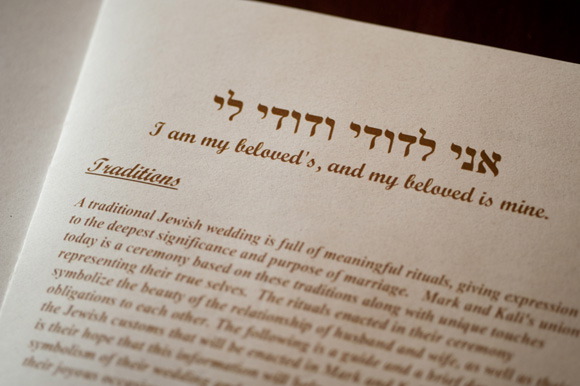 אני לדודי ודודי לי
I am my beloved's, and my beloved is mine.
Traditions
A traditional Jewish wedding is full of meaningful rituals, giving expression
to the deepest significance and purpose of marriage. Mark and Kali's union
today is a ceremony based on these traditions along with unique touches
representing their true selves. The rituals enacted in their ceremony
symbolize the beauty of the relationship of husband and wife, as well as their
obligations to each other. The following is a guide and a brief
the Jewish customs that will be enacted in Mark and
is their hope that this information will
symbolism of their wedding
their joyous